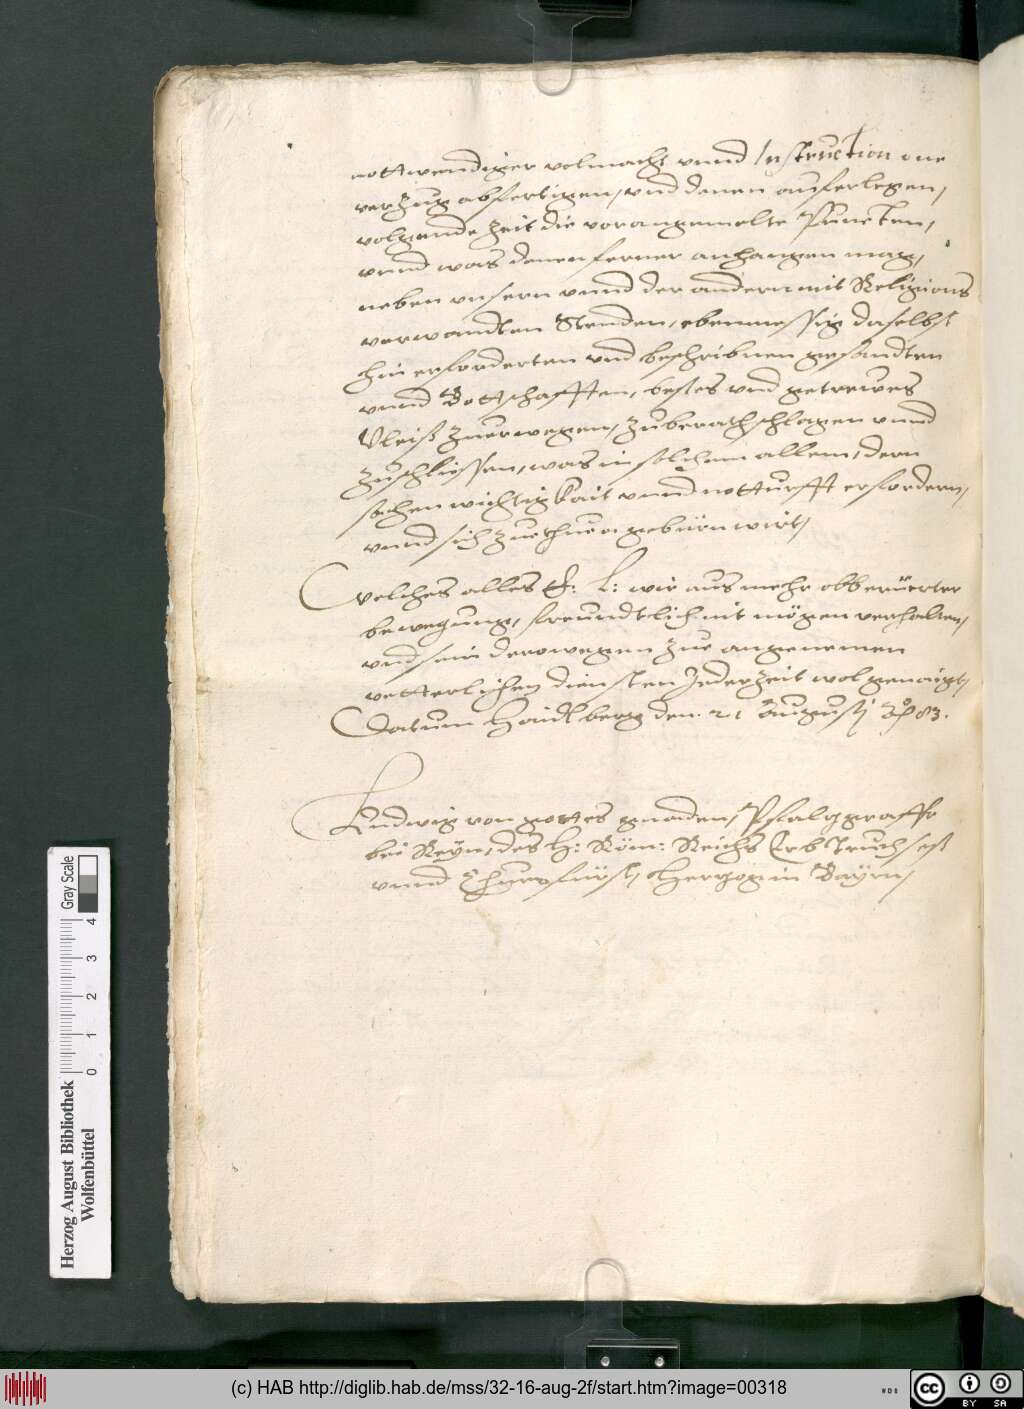 nottwendiger volmacht vnnd Instruction one
verzug abfertigen, vnd denen aufferlegen,
volgende Zeit die vorangemelte Puncten,
vnnd was denen ferner anhangen mag,
neben vnsern vnnd der andern mit Religions
verwandten Stenden, ebenmessig daselbst
hin erforderten vnd beschribnen gesandten
vnnd Bottschafften, bestes vnd getrewes
Vleiß zuerwegen, zuberathschlagen vnnd
zuschliessen, was in solchem allem, dern
sachen wichtigkait vnnd notturfft erfordern,
vnnd sich zuethuen gebüren wirt,
Welches alles E: L: wir aus mehr obberüerter
bewegung, freundtlich nit mögen verhalten,
vnd sein derowegen zue angenemen
vetterlichen diensten Jederzeit wol genaigt,
Datum Haidlberg den 21 Augustj Aº 83.
Ludwig von gottes gnaden, Pfaltzgraffe
bei Reyn, des H: Röm: Reichs Ertz Truchseß
vnnd Churfürst, Hertzog in Bayrn,
Herzog August Bibliothek
Wolfenbüttel
0 1 2 3 4
Gray Scale
(c) HAB http://diglib.hab.de/mss/32-16-aug-2f/start.htm?image=00318
WDB
cc BY SA